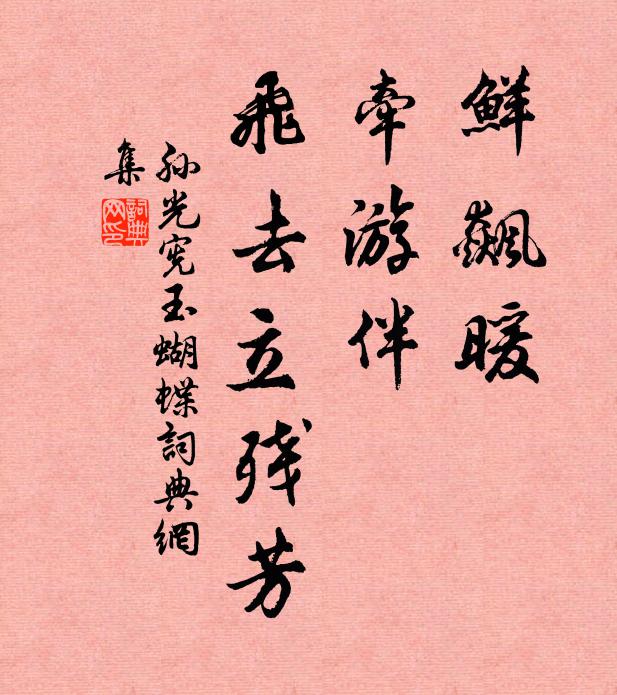 鮮飆暖
牽游伴
飛去立残芳
孫光宪玉蝴蝶詞典網
集
詞典
网印